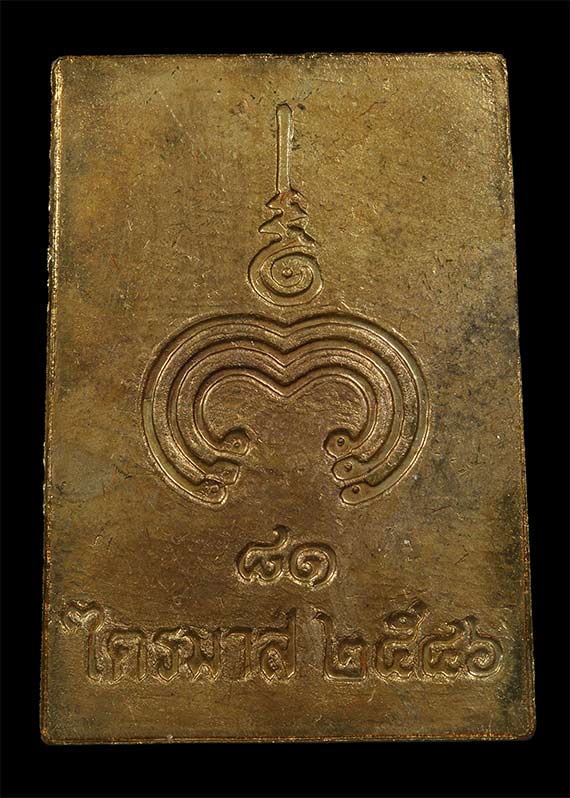 ๘๑
ไตรมาส ๒๕๔๖